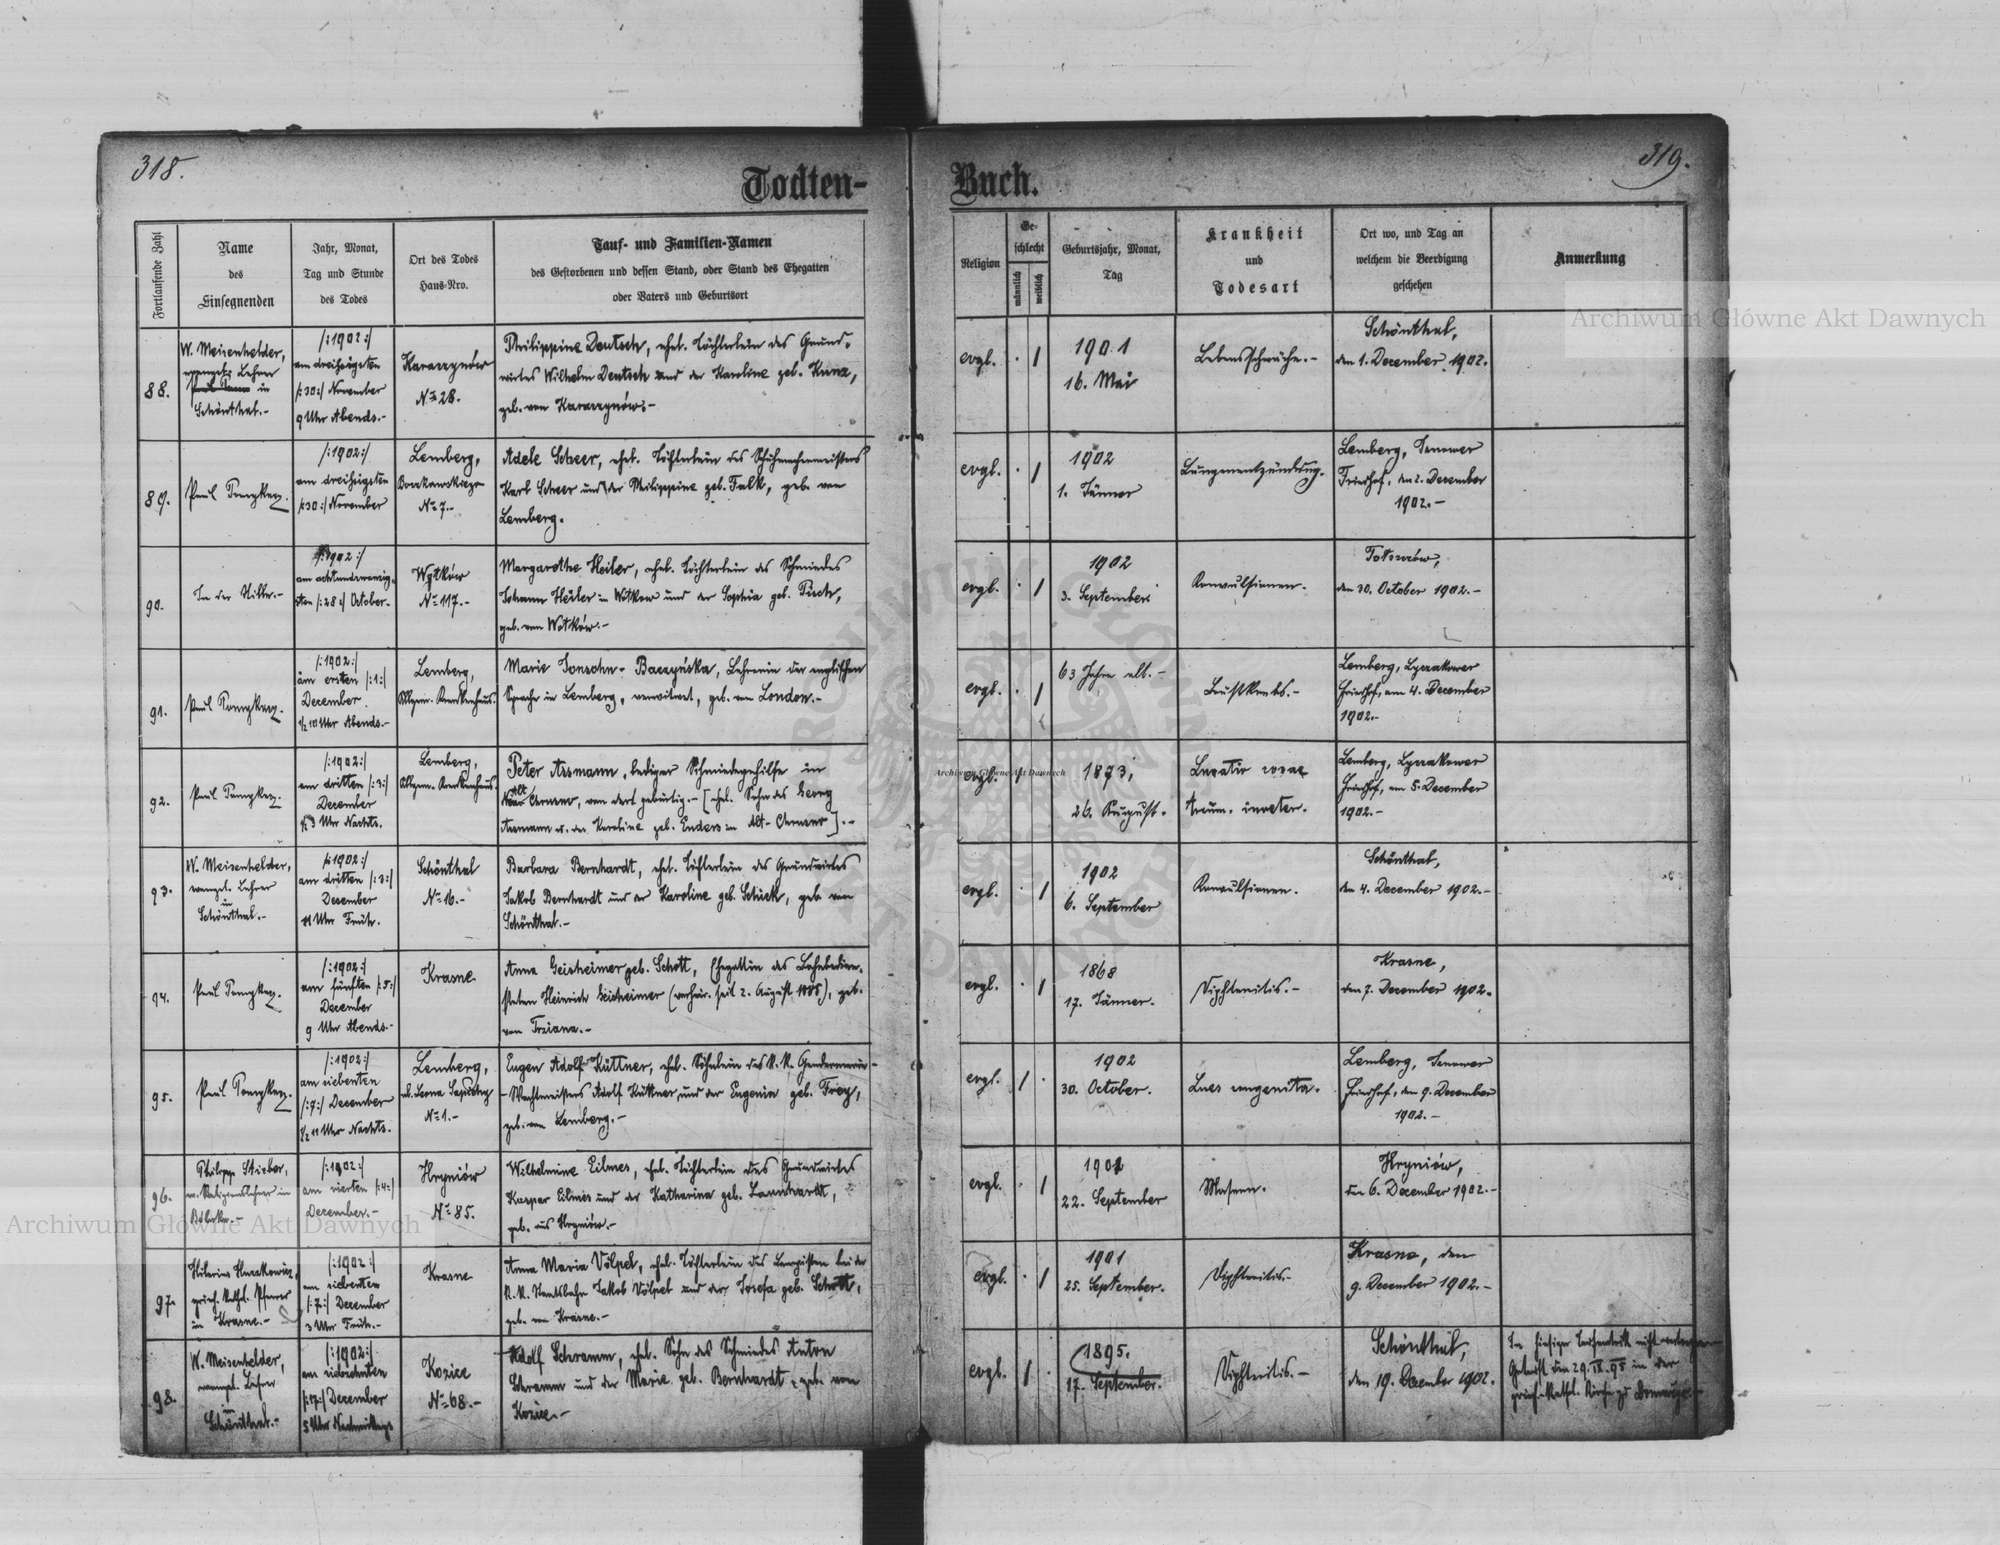 318.
Todten-
Buch.
319.
Fortlaufende Zahl
Name
des
Einsegnenden
Jahr, Monat,
Tag und Stunde
des Todes
Ort des Todes
Haus-Nro.
Tauf- und Familien-Namen
des Gestorbenen und dessen Stand, oder Stand des Ehegatten
oder Vaters und Geburtsort
Religion
Ge-
schlecht
männlich
weiblich
Geburtsjahr, Monat,
Tag
Krankheit
und
Todesart
Ort wo, und Tag an
welchem die Beerdigung
geschehen
Anmerkung
88.
W. Meisenhelder,
evangel. Lehrer
in
Schönthal.-
/:1902:/
am dreißigsten
/:30:/ November
9 Uhr Abends.-
Karaczynów
No 28.
Philippine Deutsch, ehel. Töchterlein des Grund-
wirtes Wilhelm Deutsch und der Karoline geb. Kunz,
geb. von Karaczynów.-
evgl.
1901
16. Mai
Lebensschwäche.-
Schönthal,
den 1. December 1902.
89.
Paul
/:1902:/
am dreißigsten
/:30:/ November
Lemberg,
No 7.-
Adele Scheer, ehel. Töchterlein des Schuhmachermeisters
Karl Scheer und der Philippine geb. Falk, geb. von
Lemberg.
evgl.
1902
1. Jänner
Lungenentzündung.
Lemberg, Janower
Friedhof, den 2. December
1902.-
90.
In der Stille.-
/:1902:/
am achtundzwanzig-
sten /:28:/ October.-
Wytków
No 117.-
Margarethe Heiler, ehel. Töchterlein des Schmiedes
Johann Heiler in Witkow und der Sophia geb. Pisch,
geb. von Witków.-
evgl.
1902
3. September
Konvulsionen.
den 30. October 1902.-
91.
Paul
/:1902:/
am ersten /:1:/
December
1/2 10 Uhr Abends.-
Lemberg,
Allgem. Krankenhaus.
Marie Jonsohn-Baczyńska, Lehrerin der englischen
Sprache in Lemberg, verwitwet, geb. von London.-
evgl.
63 Jahre alt.-
Brustkrebs.-
Lemberg, Lyczakower
Friedhof, am 4. December
1902.-
92.
Paul
/:1902:/
am dritten /:3:/
December
1/2 3 Uhr Nachts.
Lemberg,
Allgem. Krankenhaus.
Peter Assmann, lediger Schmiedegehilfe in
Alt
Chrusno, von dort gebürtig.- [ehel. Sohn des Georg
Assmann u. der Karoline geb. Enders in Alt-Chrusno].-
evgl.
1873,
26. August.
Luxatio coxae
traum. inveter.
Lemberg, Lyczakower
Friedhof, am 5. December
1902.-
93.
W. Meisenhelder,
evangel. Lehrer
in
Schönthal.-
/:1902:/
am dritten /:3:/
December
11 Uhr Früh.
Schönthal
No 16.-
Barbara Bernhardt, ehel. Töchterlein des Grundwirtes
Jakob Bernhardt und der Karoline geb. Schick, geb. von
Schönthal.-
evgl.
1902
6. September
Konvulsionen.
Schönthal,
den 4. December 1902.-
94.
Paul
/:1902:/
am fünften /:5:/
December
9 Uhr Abends.-
Krasne
Anna Geisheimer geb. Schott, Ehegattin des Bahnbedien-
steten Heinrich Geisheimer (verheir. seit 2. August 1885), geb.
von
evgl.
1868
17. Jänner.
Diphteritis.-
Krasne,
den 7. December 1902.
95.
Paul
/:1902:/
am siebenten
/:7:/ December
1/2 11 Uhr Nachts.
Lemberg,
ul. Leona Sapiehy
No 1.-
Eugen Adolf Küttner, ehel. Söhnlein des k. k. Gendarmerie-
Wachtmeisters Adolf Küttner und der Eugenia geb. Frey,
geb. von Lemberg.-
evgl.
1902
30. October.
Lues congenita.
Lemberg, Janower
Friedhof, den 9. December
1902.-
96.
Philipp
ev. Religionslehrer in
/:1902:/
am vierten /:4:/
December.-
Hryniów
No 85.
Wilhelmine Eilmes, ehel. Töchterlein des Grundwirtes
Kaspar Eilmes und der Katharina geb. Lannhardt,
geb. aus Hryniów.-
evgl.
22. September
Masern.
Hryniów,
den 6. December 1902.-
97.
Hilarius
griech. kathol. Pfarrer
in Krasne.-
/:1902:/
am siebenten
/:7:/ December
3 Uhr Früh.-
Krasne
Anna Maria Völpel, ehel. Töchterlein des bei der
k. k. Staatsbahn Jakob Völpel und der Josefa geb. Schott,
geb. von Krasne.-
evgl.
1901
25. September.
Diphteritis.-
Krasne, den
9. December 1902.-
98.
W. Meisenhelder,
evangel. Lehrer
in
Schönthal.-
/:1902:/
am siebzehnten
/:17:/ December
5 Uhr Nachmittags
Kozice
No 68.-
Adolf Schramm, ehel. Sohn des Schmiedes Anton
Schramm und der Marie geb. Bernhardt, geb. von
Kozice.-
evgl.
1895.
17. September.
Diphteritis.-
Schönthal,
den 19. December 1902.
In hiesiger nicht
Getauft den 29. IX. 95 in der
griech. kathol. Kirche zu
Archiwum Główne Akt Dawnych
Archiwum Główne Akt Dawnych
Archiwum Główne Akt Dawnych
ARCHIWUM GŁÓWNE AKT DAWNYCH